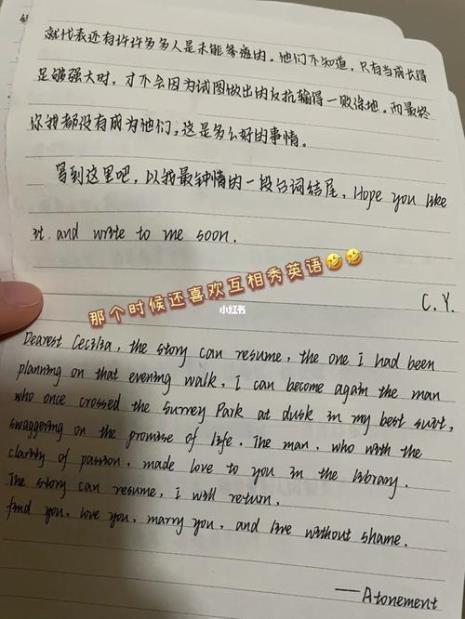 就代表还有许许多多人是未能幸通的。他们不知道，只有当成长得
足够强大时，才不会因为试图做出的反抗输得一败涂地。而最终
你我都没有成为他们，这是多么好的事情。
写到这里吧，以我最钟情的一段台词结尾，Hope you like
it. and write to me soon.
那个时候还喜欢互相秀英语🤣🤣
小红书
C.Y.
Dearest Cecilia, the story can resume, the one I had been
planning on that evening walk, I can become again the man
who once crossed the Surrey Park at dusk in my best suit,
swaggering on the promise of life. The man, who with the
clarity of passion, made love to you in the library.
The story can resume, I will return.
find you, love you, marry you, and live without shame.
——Atonement